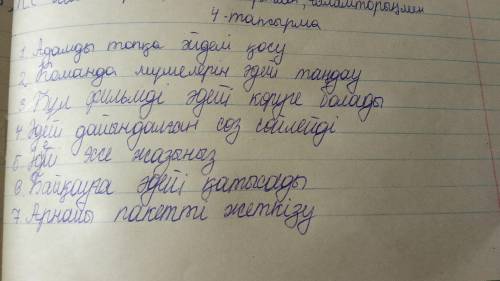 ғаламторыңмен
4-тапсырма
1. Адамды топқа әйдеі қосу
2. Команда мүшелерін әдейі таңдау
3. Бұл фильмді әдейі көруге болады
4. Әдейі дайындалған сөз сөйлейді
5. Әдейі же жазыныз
6. Байқауға әдейі қатысады
7. Арнайы пакетті жеткізу